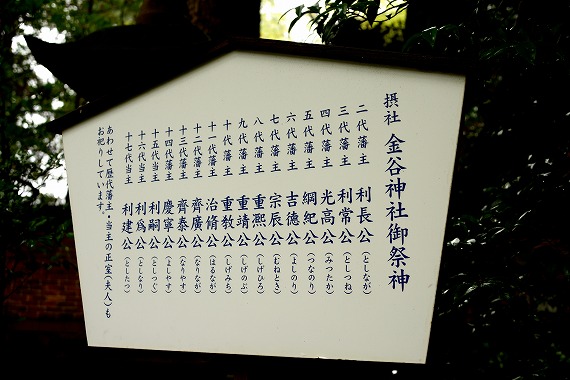 摂社 金谷神社御祭神
二代藩主 利長公(としなが)
三代藩主 利常公(としつね)
四代藩主 光高公(みつたか)
五代藩主 綱紀公(つなのり)
六代藩主 吉徳公(よしのり)
七代藩主 宗辰公(むねとき)
八代藩主 重凞公(しげひろ)
九代藩主 重靖公(しげのぶ)
十代藩主 重教公(しげみち)
十一代藩主 治脩公(はるなが)
十二代藩主 齊廣公(なりなが)
十三代藩主 齊泰公(なりやす)
十四代藩主 慶寧公(よしやす)
十五代当主 利嗣公(としつぐ)
十六代当主 利為公(としなり)
十七代当主 利建公(としたつ)
あわせて歴代藩主・当主の正室(夫人)も
お祀りしています。